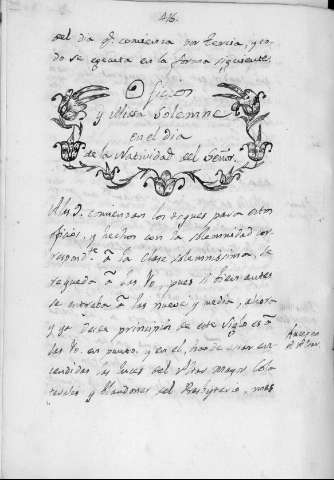 416.
del dia q.e comienza por tercia, y to-
do se egecuta en la forma siguiente.
Oficios
y Misa Solemne
en el dia
de la Natividad del Señor.
A las 9. comienzan los toques para estos
oficios, y hechos con la solemnidad cor-
respond.te a la Clase solemnissima, se
a las 10, pues si bien antes
se entraba a las nueve y media, ahora
y ya desde principio de este Siglo es a
las 10. en punto. y en el, han de estar en-
cendidas las luces del Altar mayor,
y blandones del Presbyterio, mas